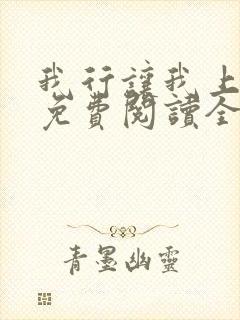 我行讓我上
免費閱讀全
青墨幽靈